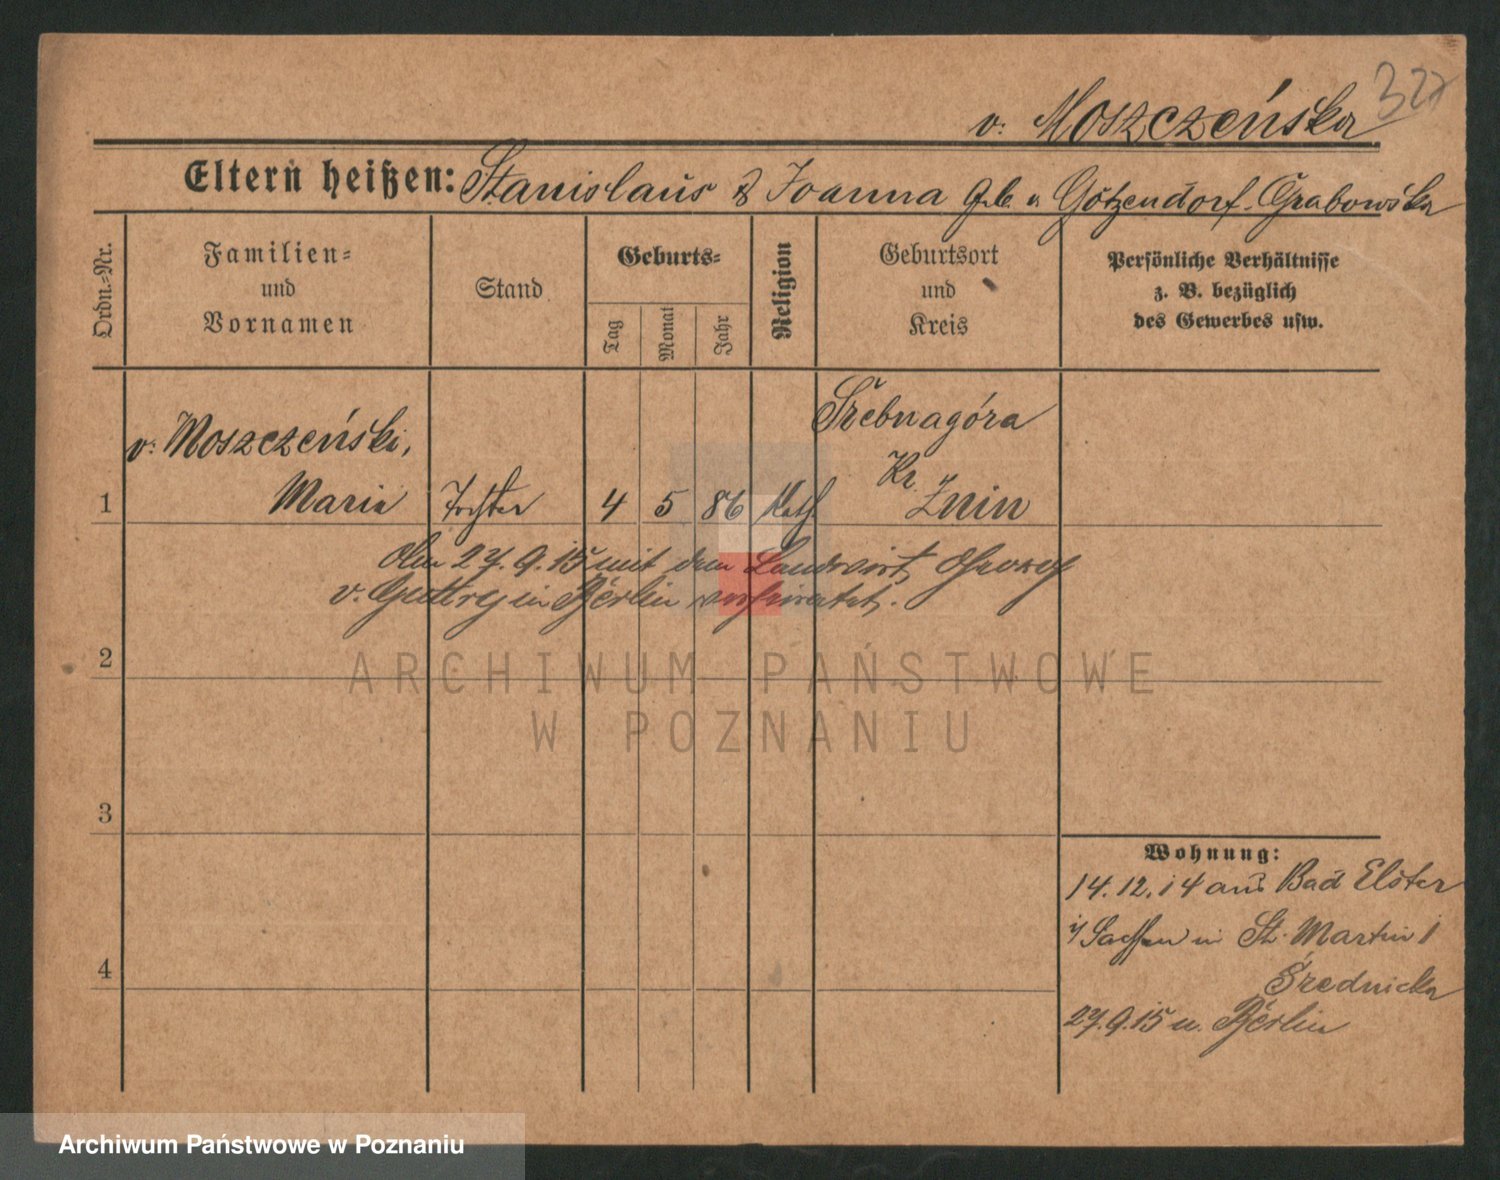 327
v. Moszczeńska
Eltern heißen: Stanislaus & Joanna geb. v. Götzendorf-Grabowska
Ordn.-Nr.
Familien-
und
Vornamen
Stand
Geburts-
Tag
Monat
Jahr
Religion
Geburtsort
und
Kreis
Persönliche Verhältnisse
z. B. bezüglich
des Gewerbes usw.
v. Moszczeński,
Srebnagóra
Kr.
1 Maria Tochter 4 5 86 Kath. Znin
Am 27.9.15 mit dem Landwirt
v. in Berlin verheiratet.
2
3
4
Wohnung:
14.12.14 aus Bad Elster
i/Sachsen in St. Martin 1
Średnicka
27.9.15 n. Berlin
ARCHIWUM PAŃSTWOWE
W POZNANIU
Archiwum Państwowe w Poznaniu